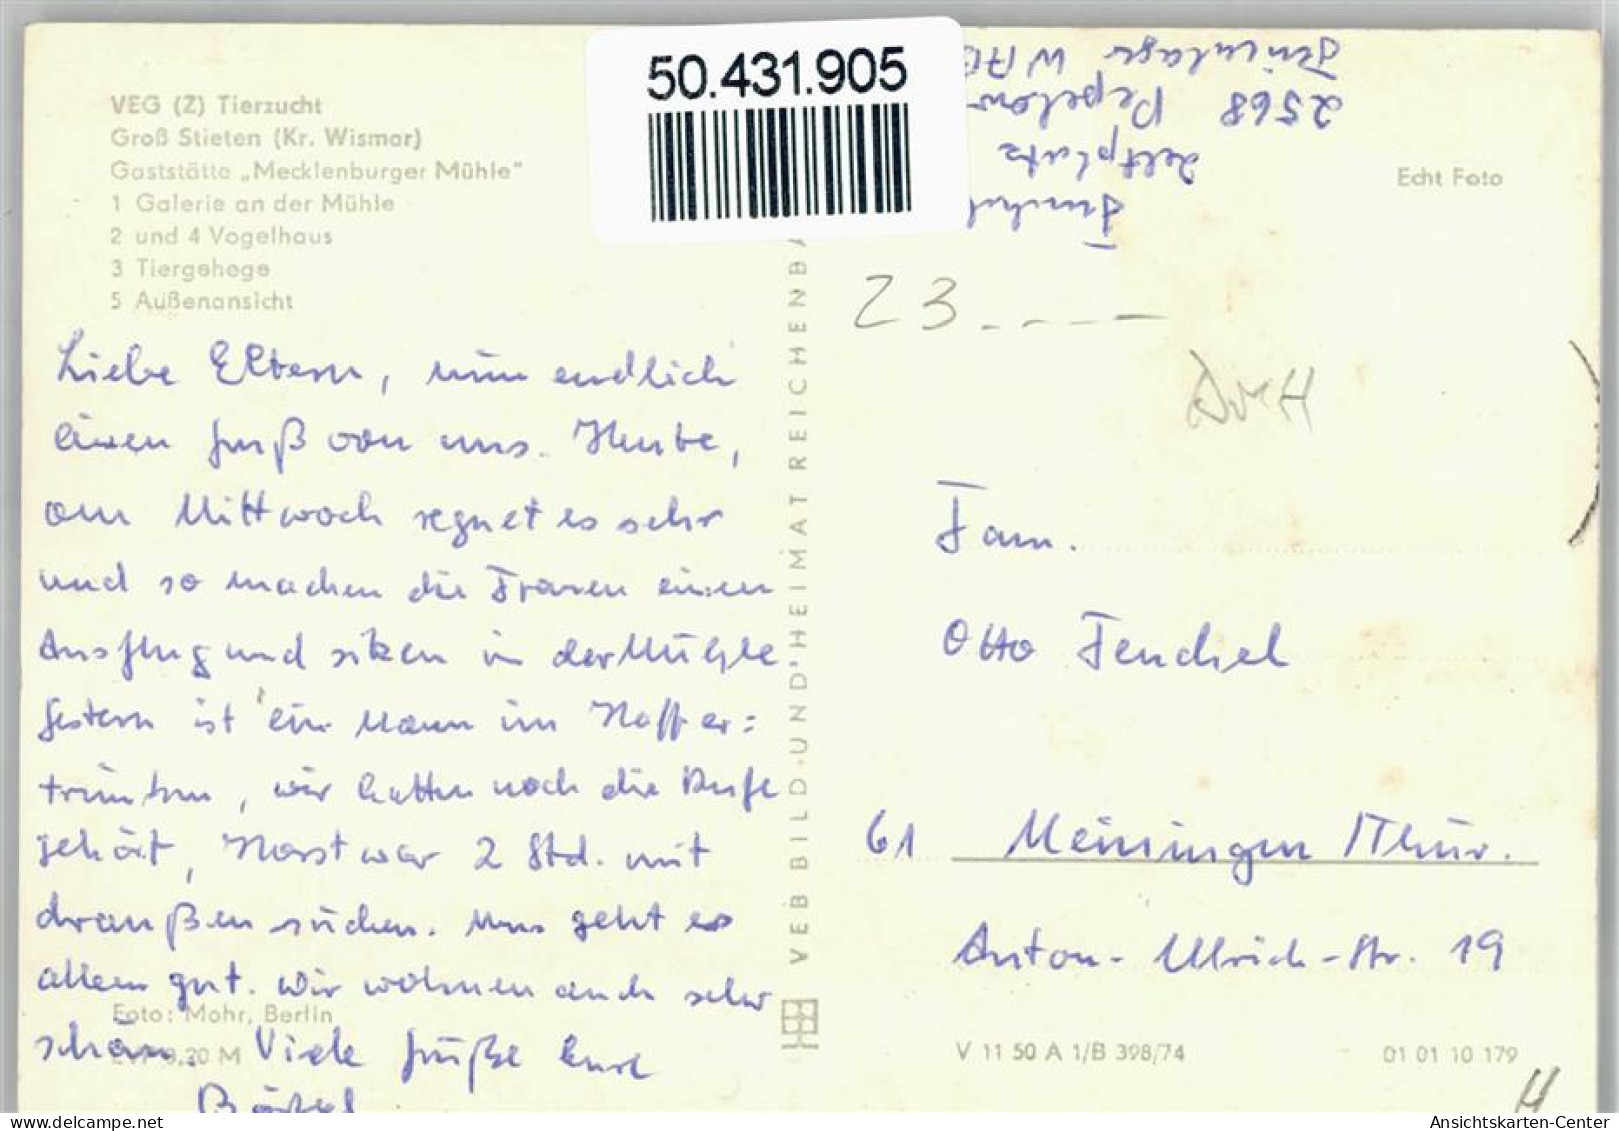 VEG (Z) Tierzucht
Groß Stieten (Kr. Wismar)
Gaststätte „Mecklenburger Mühle"
1 Galerie an der Mühle
2 und 4 Vogelhaus
3 Tiergehege
5 Außenansicht
Liebe Eltern, nun endlich
einen Gruß von uns. Heute,
am Mittwoch regnet es sehr
und so machen die Frauen einen
Ausflug und sitzen in der Mühle.
Gestern ist ein Mann im Haff er=
trunken, wir hatten noch die Rufe
gehört, Horst war 2 Std. mit
draußen suchen. Uns geht es
allen gut. Wir wohnen auch sehr
schön. Viele Grüße Eure
Bärbel
Foto: Mohr, Berlin
0,20 M
VEB BILD-UND HEIMAT REICHENBA
50.431.905
Zeltplatz
2568 Pepelow
Ferienlager
Echt Foto
23.----
Fam.
Otto Fenchel
61 Meiningen /Thür.
Anton-Ulrich-Str. 19
V 11 50 A 1/B 398/74
01 01 10 179
H
www.delcampe.net
Ansichtskarten-Center